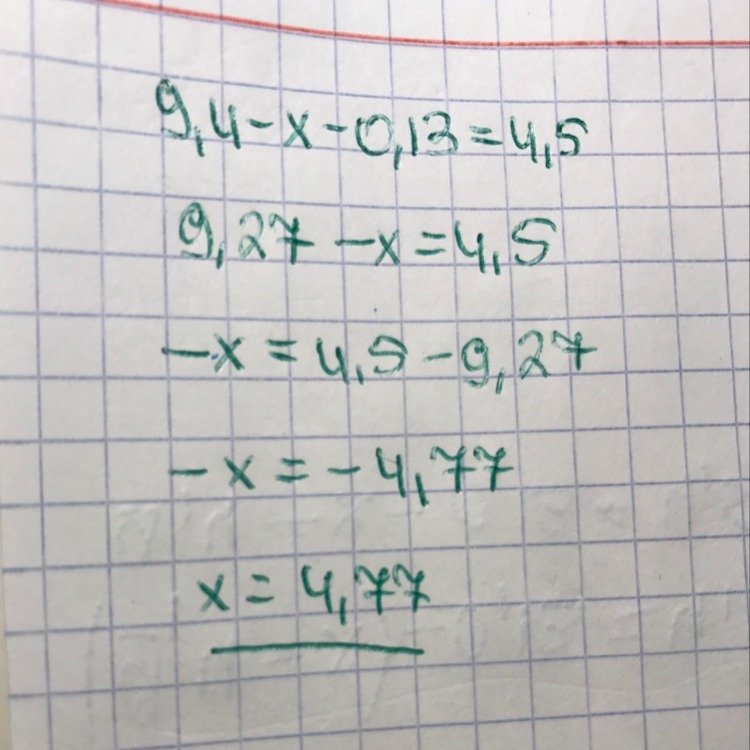 9,4-x-0,13=4,5
9,27-x=4,5
-x=4,5-9,27
-x=-4,77
x=4,77